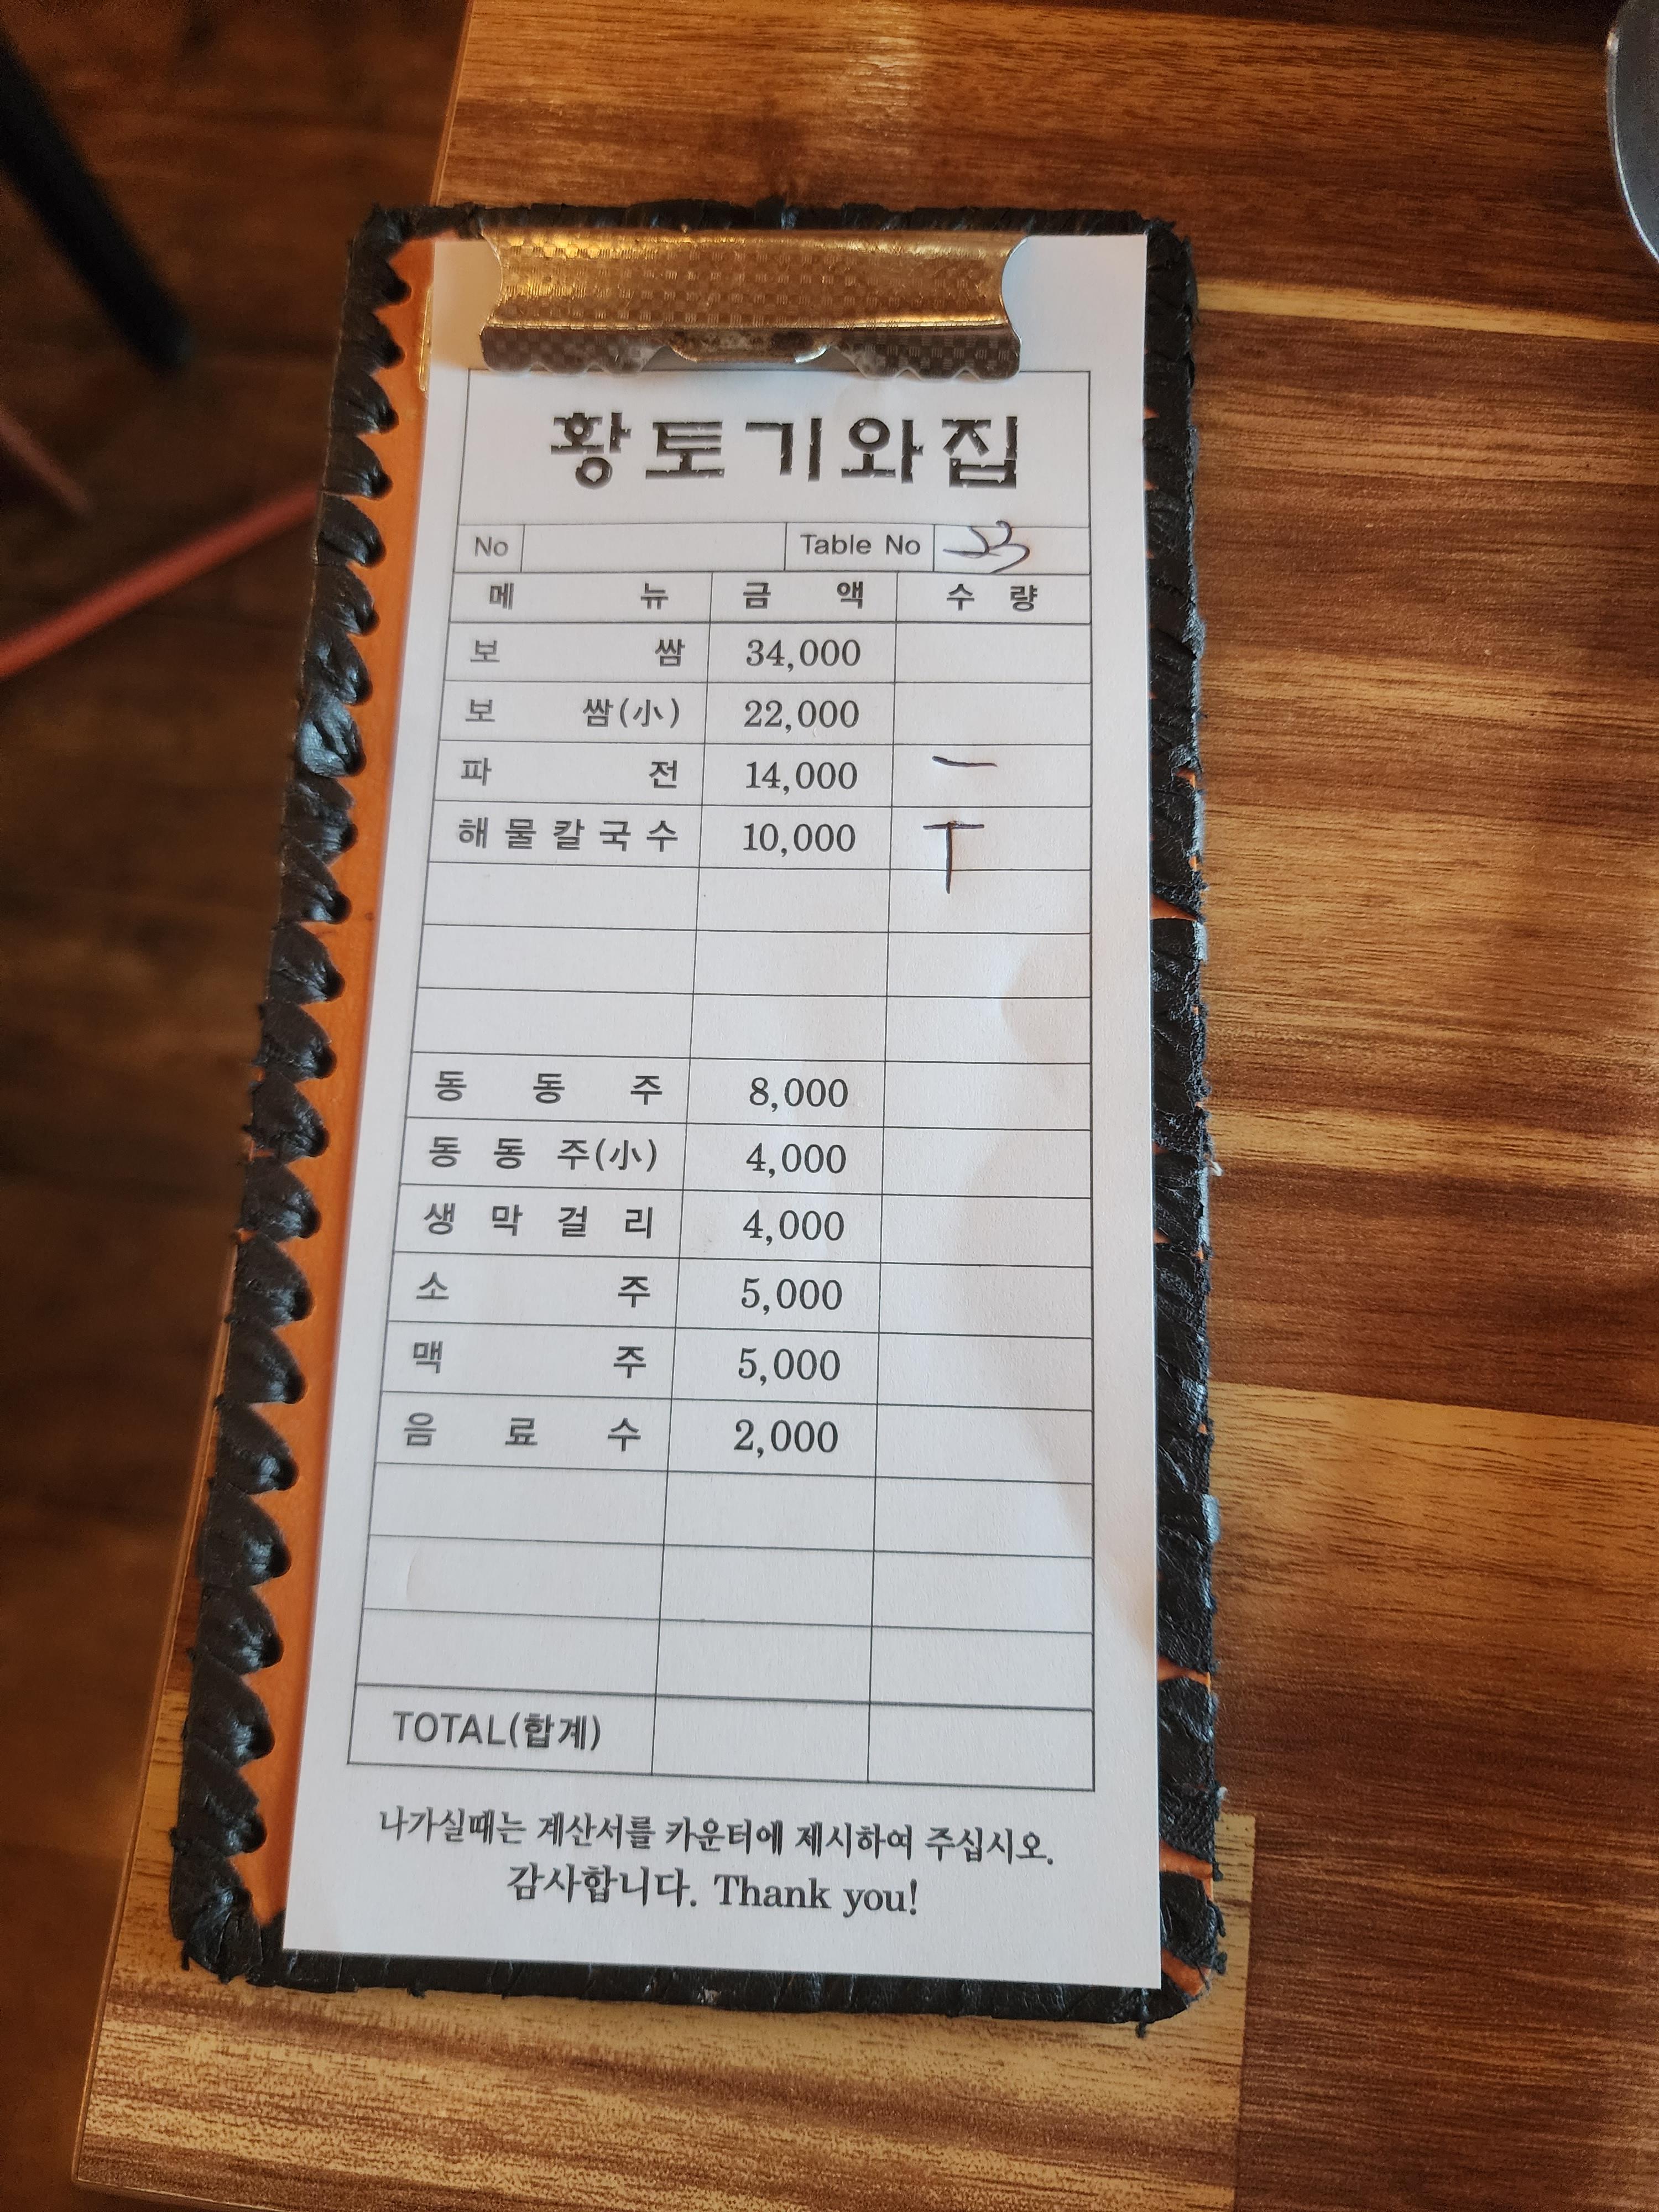 황토기와집
No Table No 33
메뉴 금액 수량
보쌈 34,000
보쌈(小) 22,000
파전 14,000 一
해물칼국수 10,000 丅
동동주 8,000
동동주(小) 4,000
생막걸리 4,000
소주 5,000
맥주 5,000
음료수 2,000
TOTAL(합계)
나가실때는 계산서를 카운터에 제시하여 주십시오.
감사합니다. Thank you!